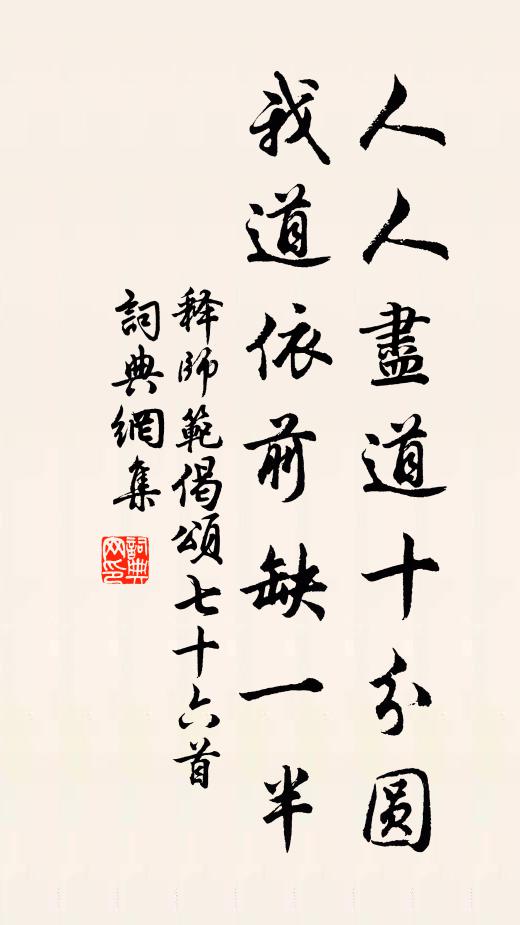 人人盡道十分圓
我道依前缺一半
释師範偈頌七十六首
詞典網集
詞典
网印